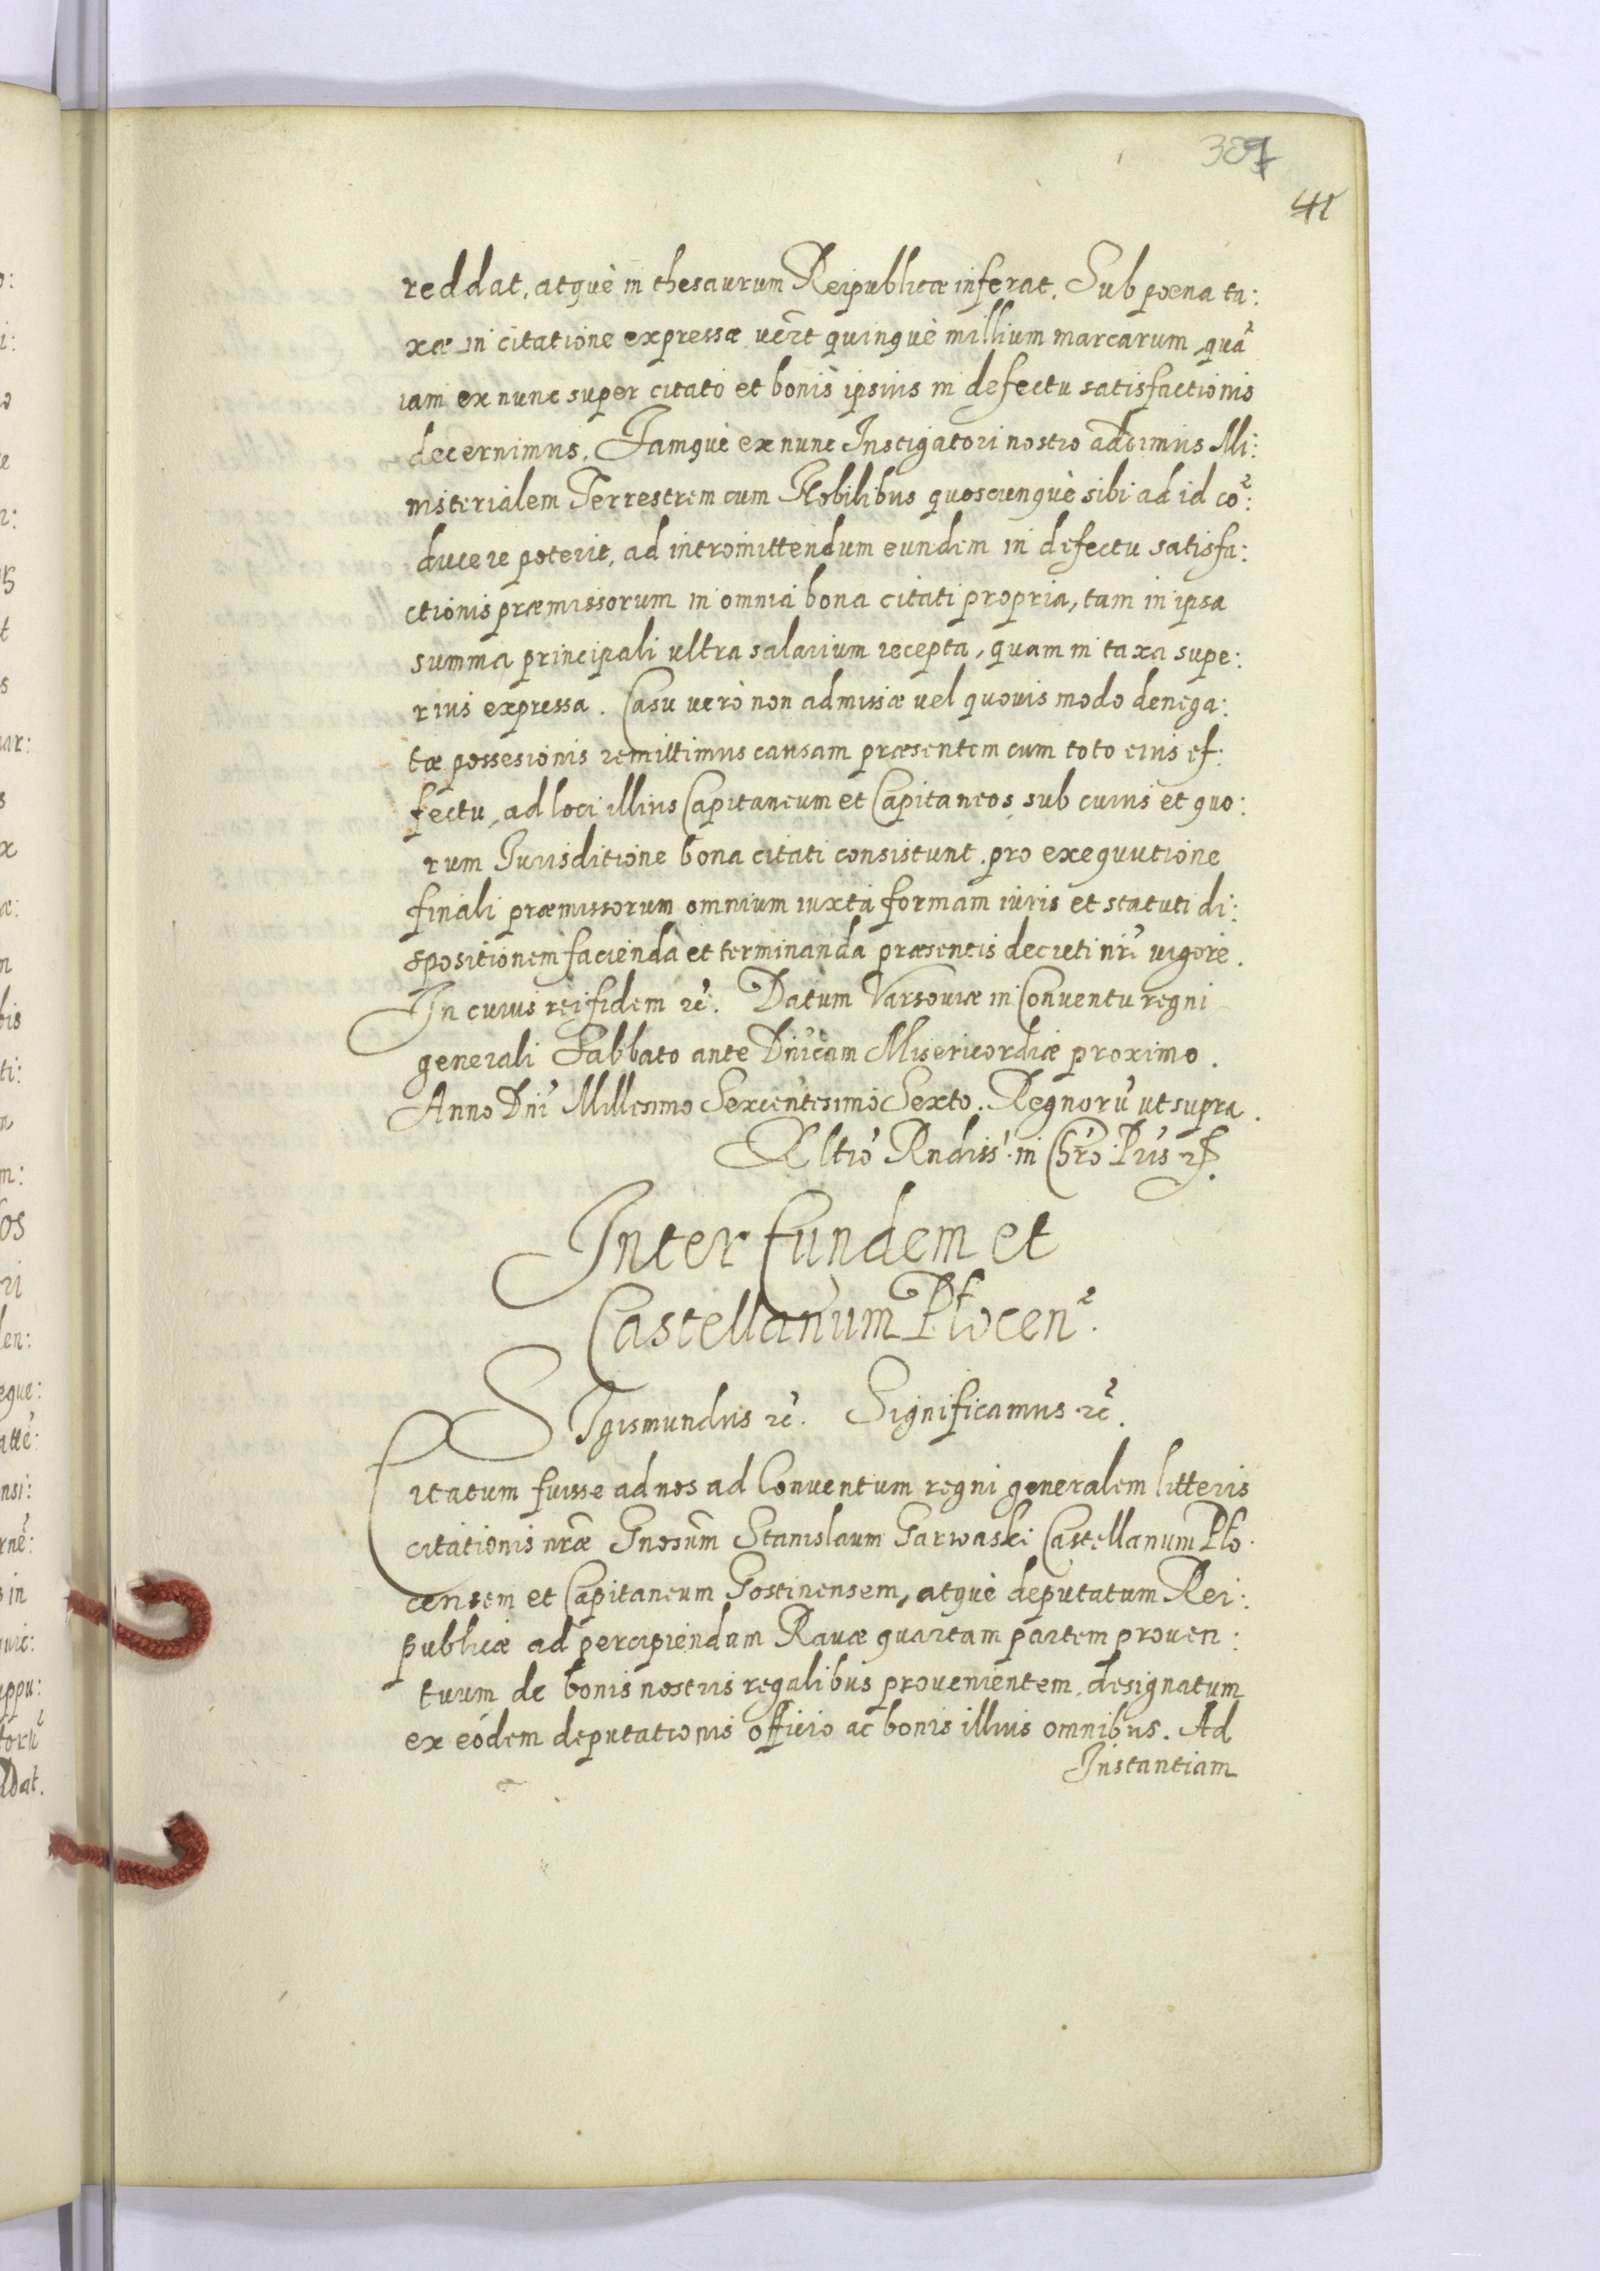 41
reddat, atquè in thesaurum Reipublicæ inferat. Sub poena ta:
xæ in citatione expressæ vẽrt quinquè millium marcarum, quã
iam ex nunc super citato et bonis ipsius in defectu satisfactionis
decernimus. Iamquè ex nunc Instigatori nostro addimus Mi:
nisterialem Terrestrem cum Nobilibus quoscunquè sibi ad id cõ:
ducere poterit, ad intromittendum eundem in defectu satisfa:
ctionis præmissorum in omnia bona citati propria, tam in ipsa
summa principali ultra salarium recepta, quam in taxa supe:
rius expressa. Casu verò non admissæ vel quovis modo denega:
tæ possesionis remittimus causam præsentem cum toto eius ef:
fectu, ad loci illius Capitaneum et Capitaneos, sub cuius et quo:
rum Jurisditione bona citati consistunt, pro exequutione
finali præmissorum omnium iuxta formam iuris et statuti di:
spositionem faciendà et terminanda præsentis decreti nrĩ vigore.
In cuius rei fidem &c̃. Datum Varsoviæ in Conventu regni
generali Sabbato ante Dnĩcam Misericordiæ proximo.
Anno Dnĩ Millesimo Sexcentesimo Sexto. Regnorũ ut supra.
Rltiõ Rndiss̃. in Chrõ Pris &c.
Inter Eundem et
Castellanum Płocen̄.
SIgismundus &c̃. Significamus &c̃.
Citatum fuisse ad nos ad Conventum regni generalem litteris
citationis nræ̃ Gnosum̃ Stanislaum Garwaski Castellanum Pło:
censem et Capitaneum Gostinensem, atquè deputatum Rei:
publicæ ad percipiendam Ravæ quartam partem proven:
tuum de bonis nostris regalibus provenientem, designatum
ex eódem deputationis officio ac bonis illius omnibus. Ad
Instantiam